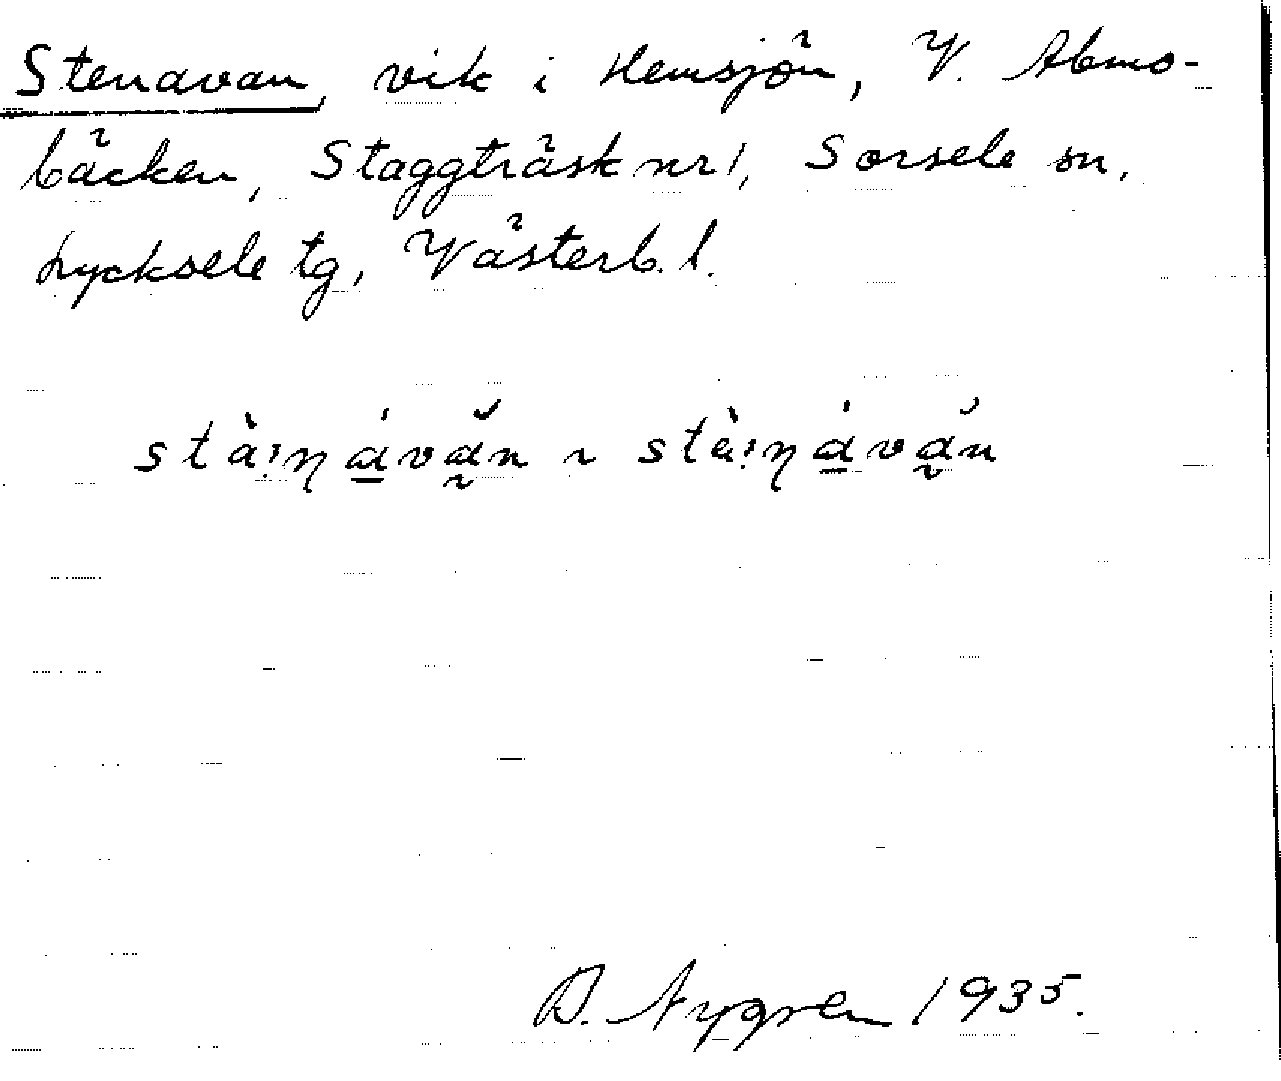 Stenavan, vik i Hemsjön, V. Abmo-
bäcken, Staggträsk nr 1, Sorsele sn,
Lycksele tg, Västerb. l.
stà꞉ŋávăn ~ stà꞉ŋávăn
B. Nygren 1935.